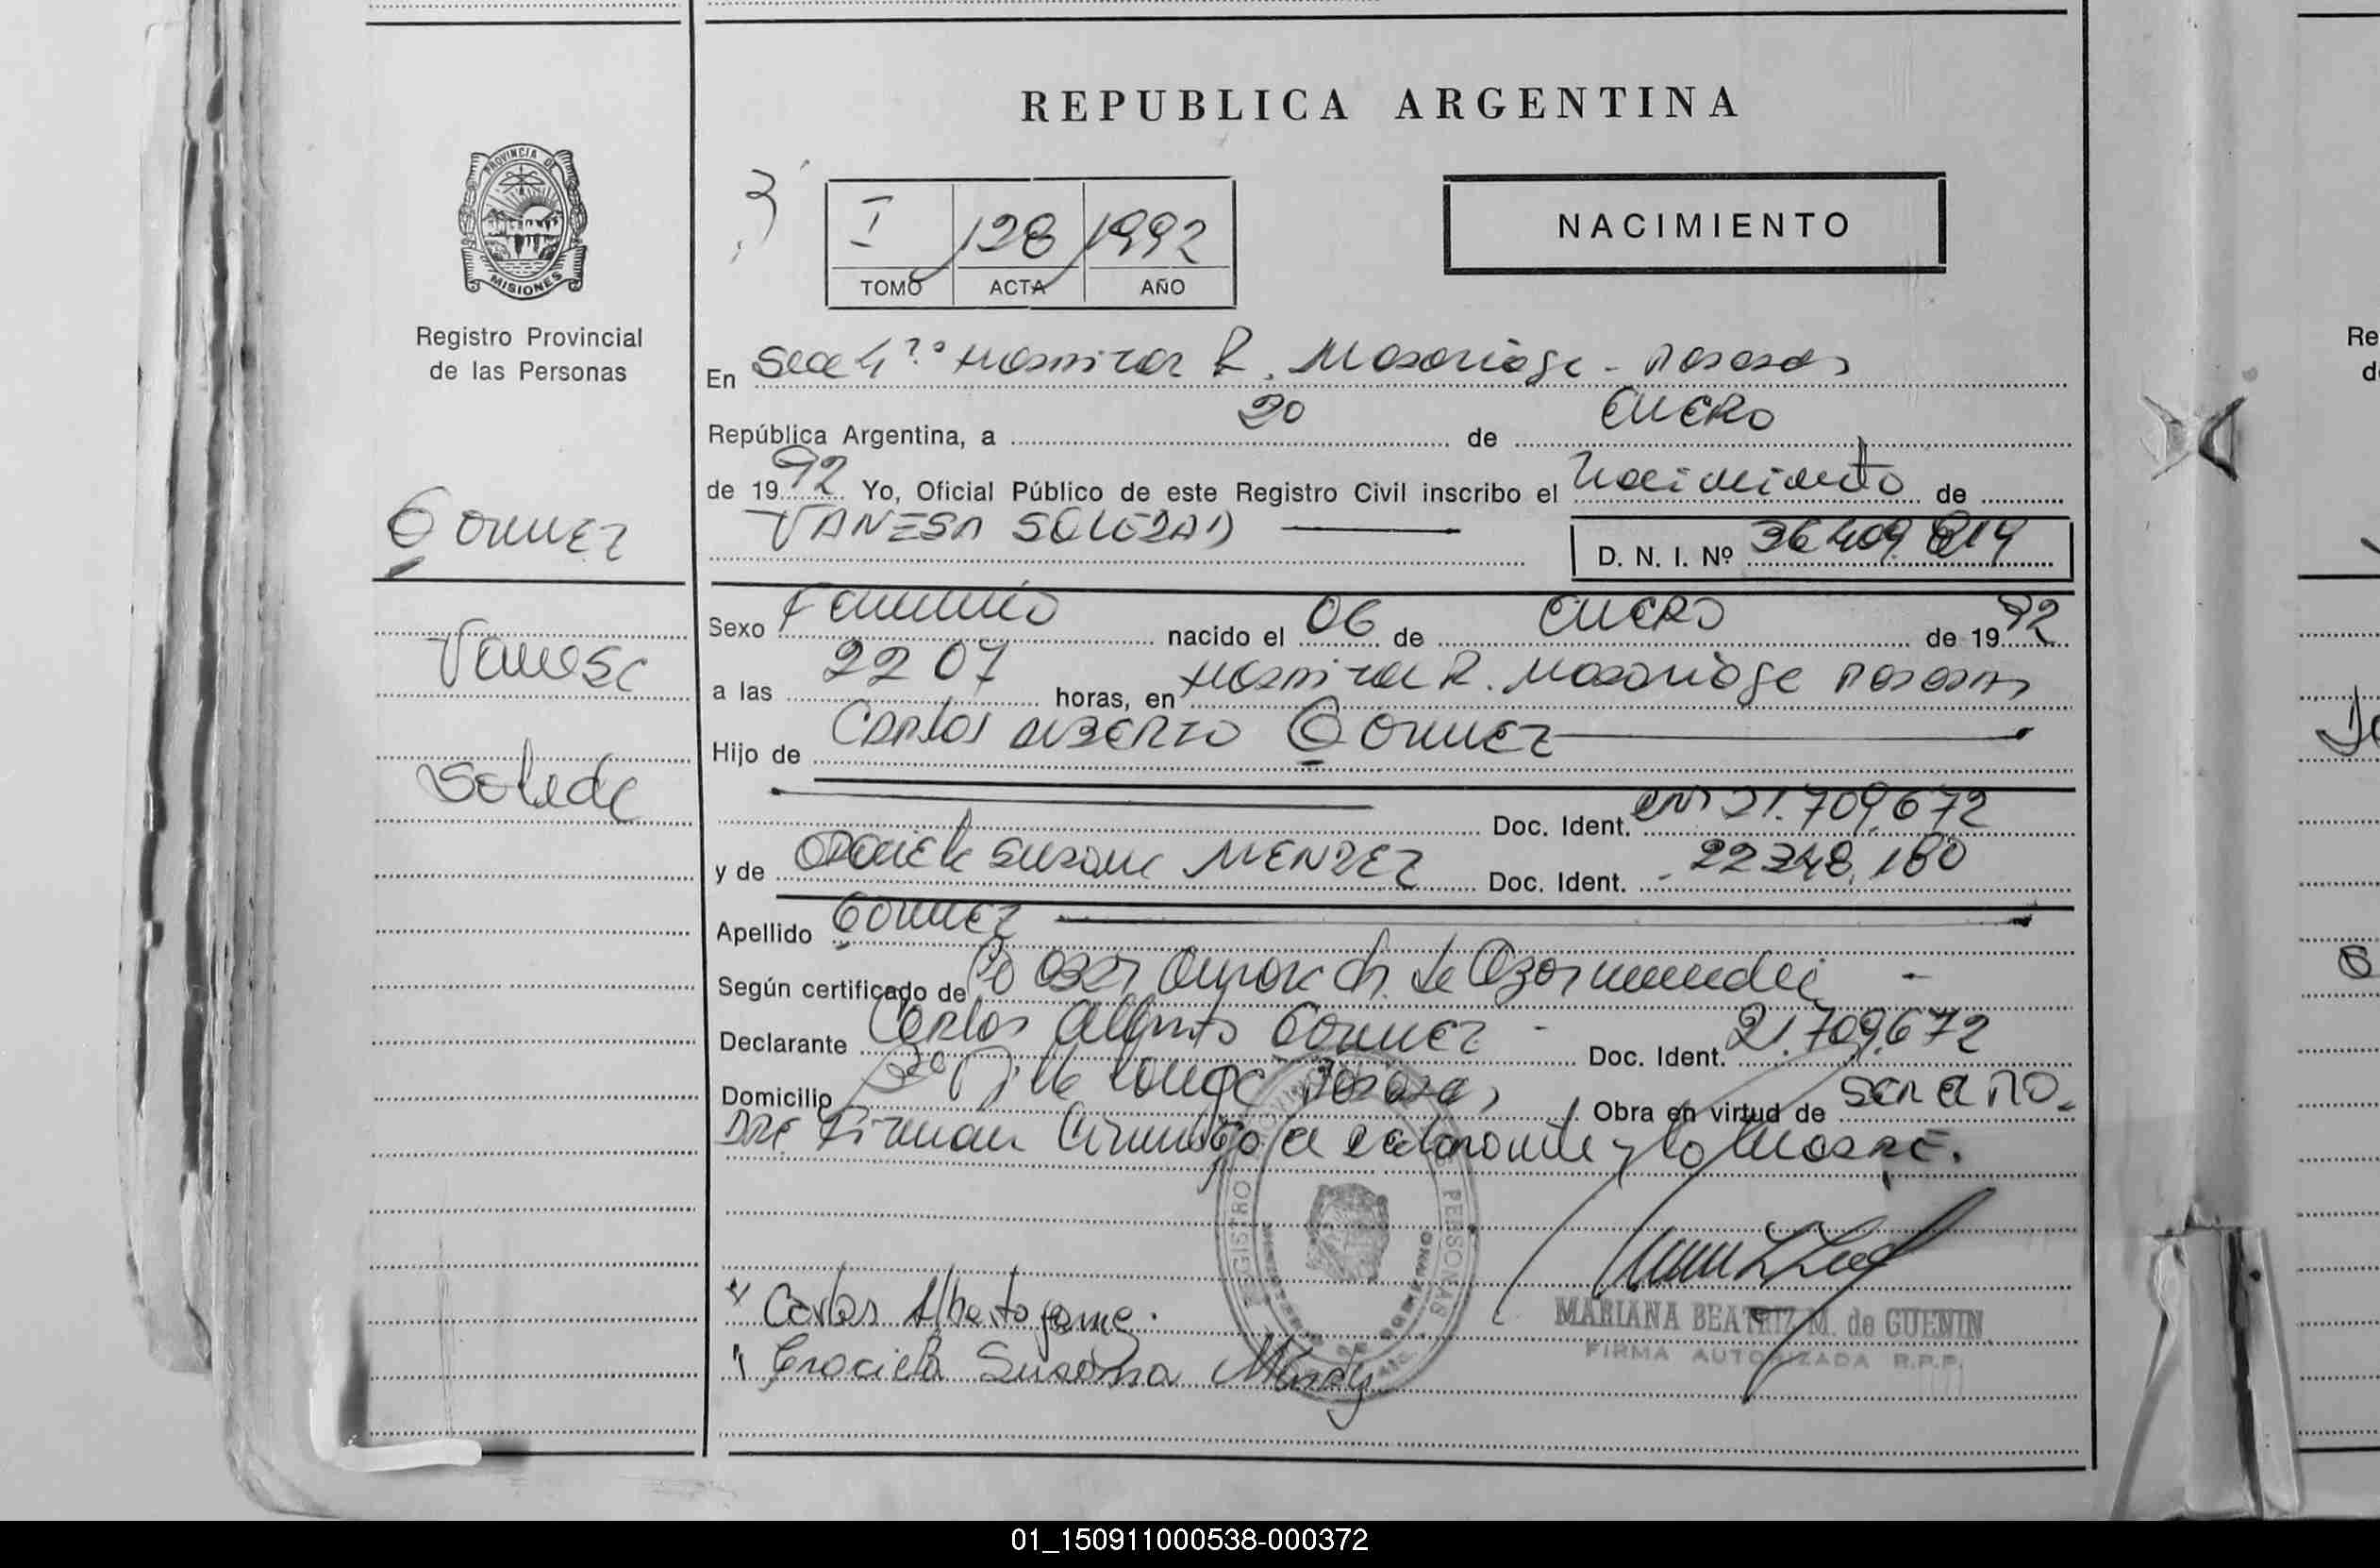 REPUBLICA ARGENTINA
PROVINCIA DE
MISIONES
Registro Provincial
de las Personas
3
I 128 1992
TOMO ACTA AÑO
NACIMIENTO
En Secc 4ª Hospital R. Madariaga - Posadas
República Argentina, a 20 de ENERO
de 1992 Yo, Oficial Público de este Registro Civil inscribo el Nacimiento de
VANESA SOLEDAD
D. N. I. Nº 36.409.819
Gomez
Vanesa
Soledad
Sexo Femenino nacido el 06 de ENERO de 1992
a las 22 07 horas, en Hospital R. Madariaga Posadas
Hijo de Carlos Alberto GOMEZ
Doc. Ident. DNI 21.709.672
y de Graciela Susana MENDEZ Doc. Ident. 22348.180
Apellido GOMEZ
Según certificado de
Declarante Carlos Alberto GOMEZ - Doc. Ident. 21.709.672
Domicilio Posadas Obra en virtud de ser el PA-
DRE Firman conmigo el declarante y la MADRE.
Carlos Alberto Gomez.
Graciela Susana Mendez
REGISTRO PROVINCIAL DE LAS PERSONAS
MARIANA BEATRIZ M. de GUENIN
FIRMA AUTORIZADA R.P.P.
Re
d
01_150911000538-000372